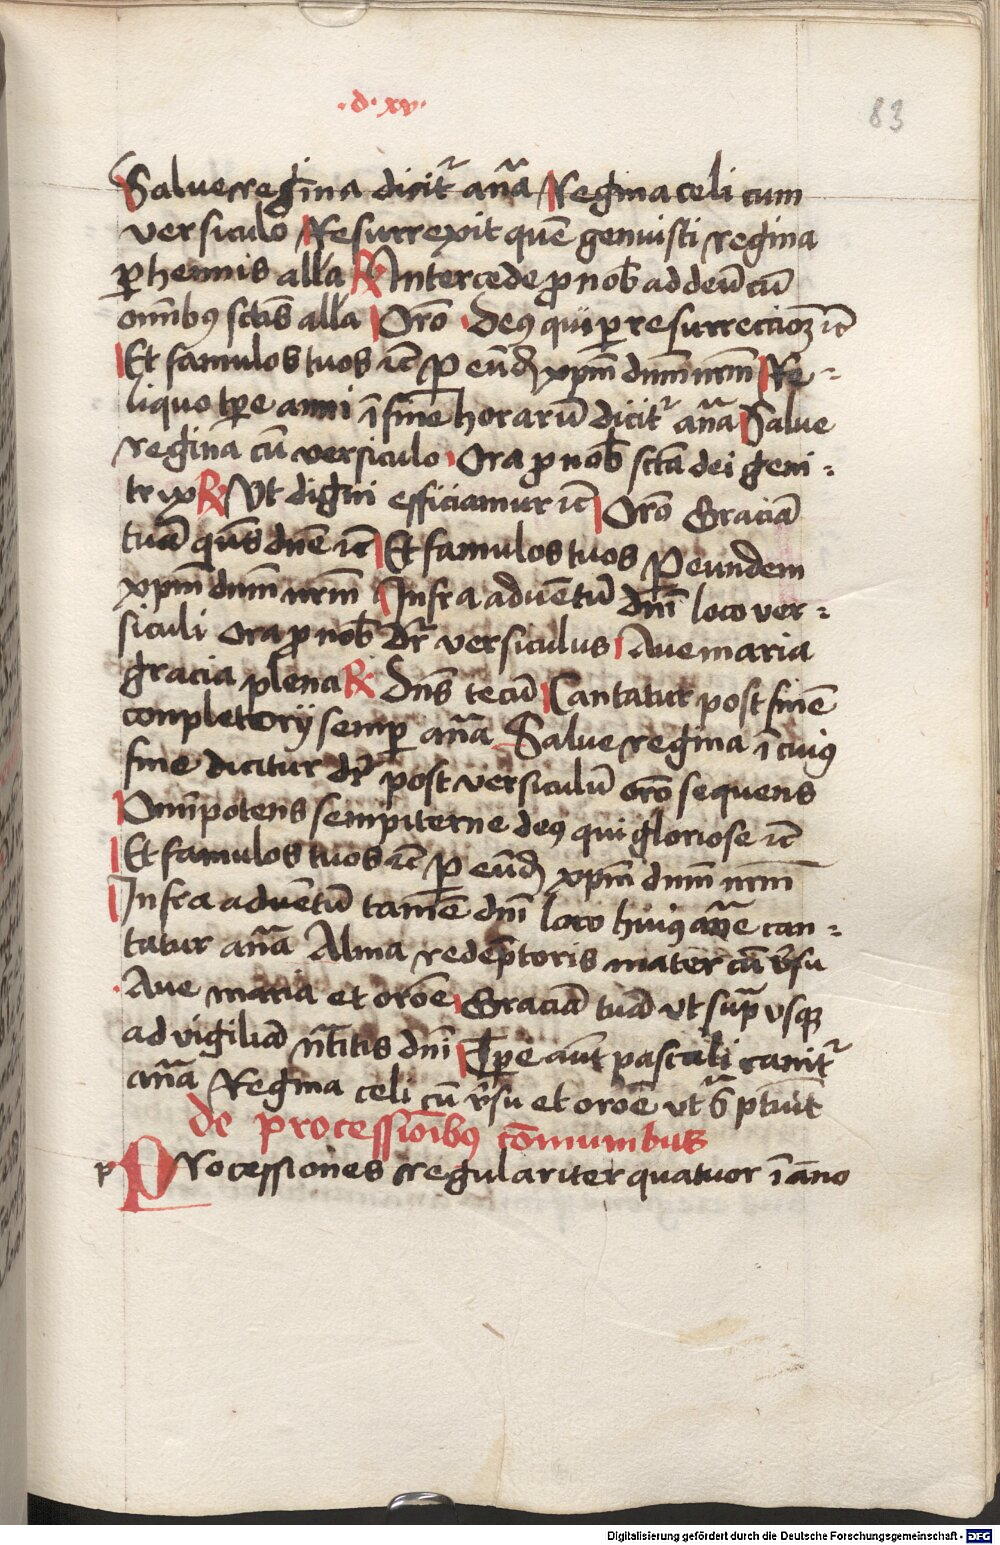 ·d·xv·
83
Salue regina dicit᷑ an̄a Regina celi cum
versiculo Resurrexit quē genuisti regina
ꝑhennis all̄a ℟ Intercede ꝓ nob̄ ad deū cū
om̄ibꝰ sctīs all̄a Or̄o Deꝰ qui ꝑ resurrectioꝫ ⁊c̄
Et famulos tuos ⁊c̄ P eūd̄ xp̄m dn̄m nr̄m Re-
liquo tp̄e anni ī fine horarū dicit᷑ an̄a Salue
regina cū versiculo Ora ꝓ nob̄ sctā dei geni-
trix ℟ Vt digni efficiamur ⁊c̄ Or̄o Graciā
tuā qs̄ dn̄e ⁊c̄ Et famulos tuos P eundem
xp̄m dn̄m nr̄m Infra aduētū dn̄i loco ver-
siculi Ora ꝓ nob̄ dr̄ versiculus Aue maria
gracia plena ℟ Dn̄s tecū Cantatur post finē
conpletorij semꝑ an̄a Salue regina ī cuiꝰ
fine dicitur dr̄ post versiculū or̄o sequens
Om̄ipotens sempiterne deꝰ qui gloriose ⁊c̄
Et famulos tuos ⁊c̄ P eūd̄ xp̄m dn̄m nr̄m
Infra aduētū tamē dn̄i loco huiꝰ an̄e can-
tatur an̄a Alma redēptoris mater cū v̄su
Aue maria et or̄oe Graciā tuā vt sup̄ vsqꝫ
ad vigiliā nt̄itis dn̄i Tp̄e aūt pascali canit᷑
an̄a Regina celi cū v̄su et or̄oe vt s̄ ptūit
de processiōibꝰ cōmunibus
p Processiones regulariter quatuor ī āno
Digitalisierung gefördert durch die Deutsche Forschungsgemeinschaft - DFG